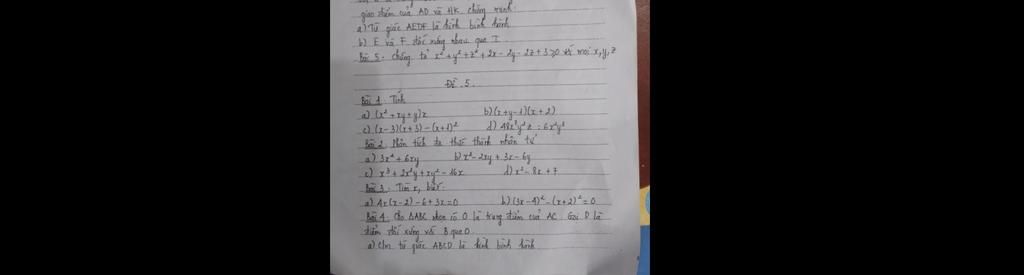 giao điểm của AD và HK chứng minh:
a) Tứ giác AEDF là hình bình hành
b) E và F đối xứng nhau qua I
Bài 5. Chứng tỏ x² + y² + z² + 2x - 2y - 2z + 3 ≥ 0 với mọi x, y, z
Đề 5.
Bài 1. Tính
a) (x² + xy + y)x b) (x + y - 1)(x + 2)
c) (x - 3)(x + 3) - (x + 1)² d) 48x³y⁴z : 6x²y³
Bài 2. Phân tích đa thức thành nhân tử
a) 3x² + 6xy b) x² - 2xy + 3x - 6y
c) x³ + 2x²y + xy² - 16x d) x² - 8x + 7
Bài 3. Tìm x, biết
a) 4x(x - 2) - 6 + 3x = 0 b) (3x - 4)² - (x + 2)² = 0
Bài 4. Cho ΔABC nhọn có O là trung điểm của AC. Gọi D là
điểm đối xứng với B qua O.
a) C/m tứ giác ABCD là hình bình hành